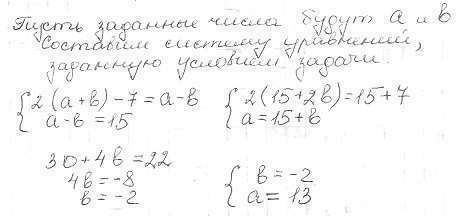 Пусть заданные числа будут a и b
Составим систему уравнений,
заданную условием задачи.
{2(a+b)-7=a-b
a-b=15
{2(15+2b)=15+7
a=15+b
30+4b=22
4b=-8
b=-2
{b=-2
a=13